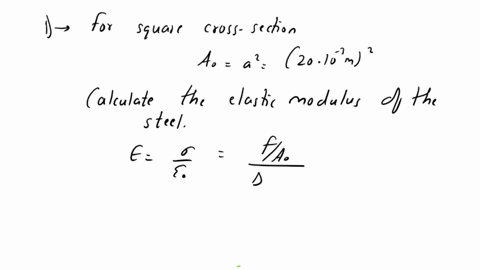 1) → For square cross-section
A₀ = a² = (20·10⁻³m)²
Calculate the elastic modulus of the
steel.
E = σ/ε₀ = (F/A₀)/Δ